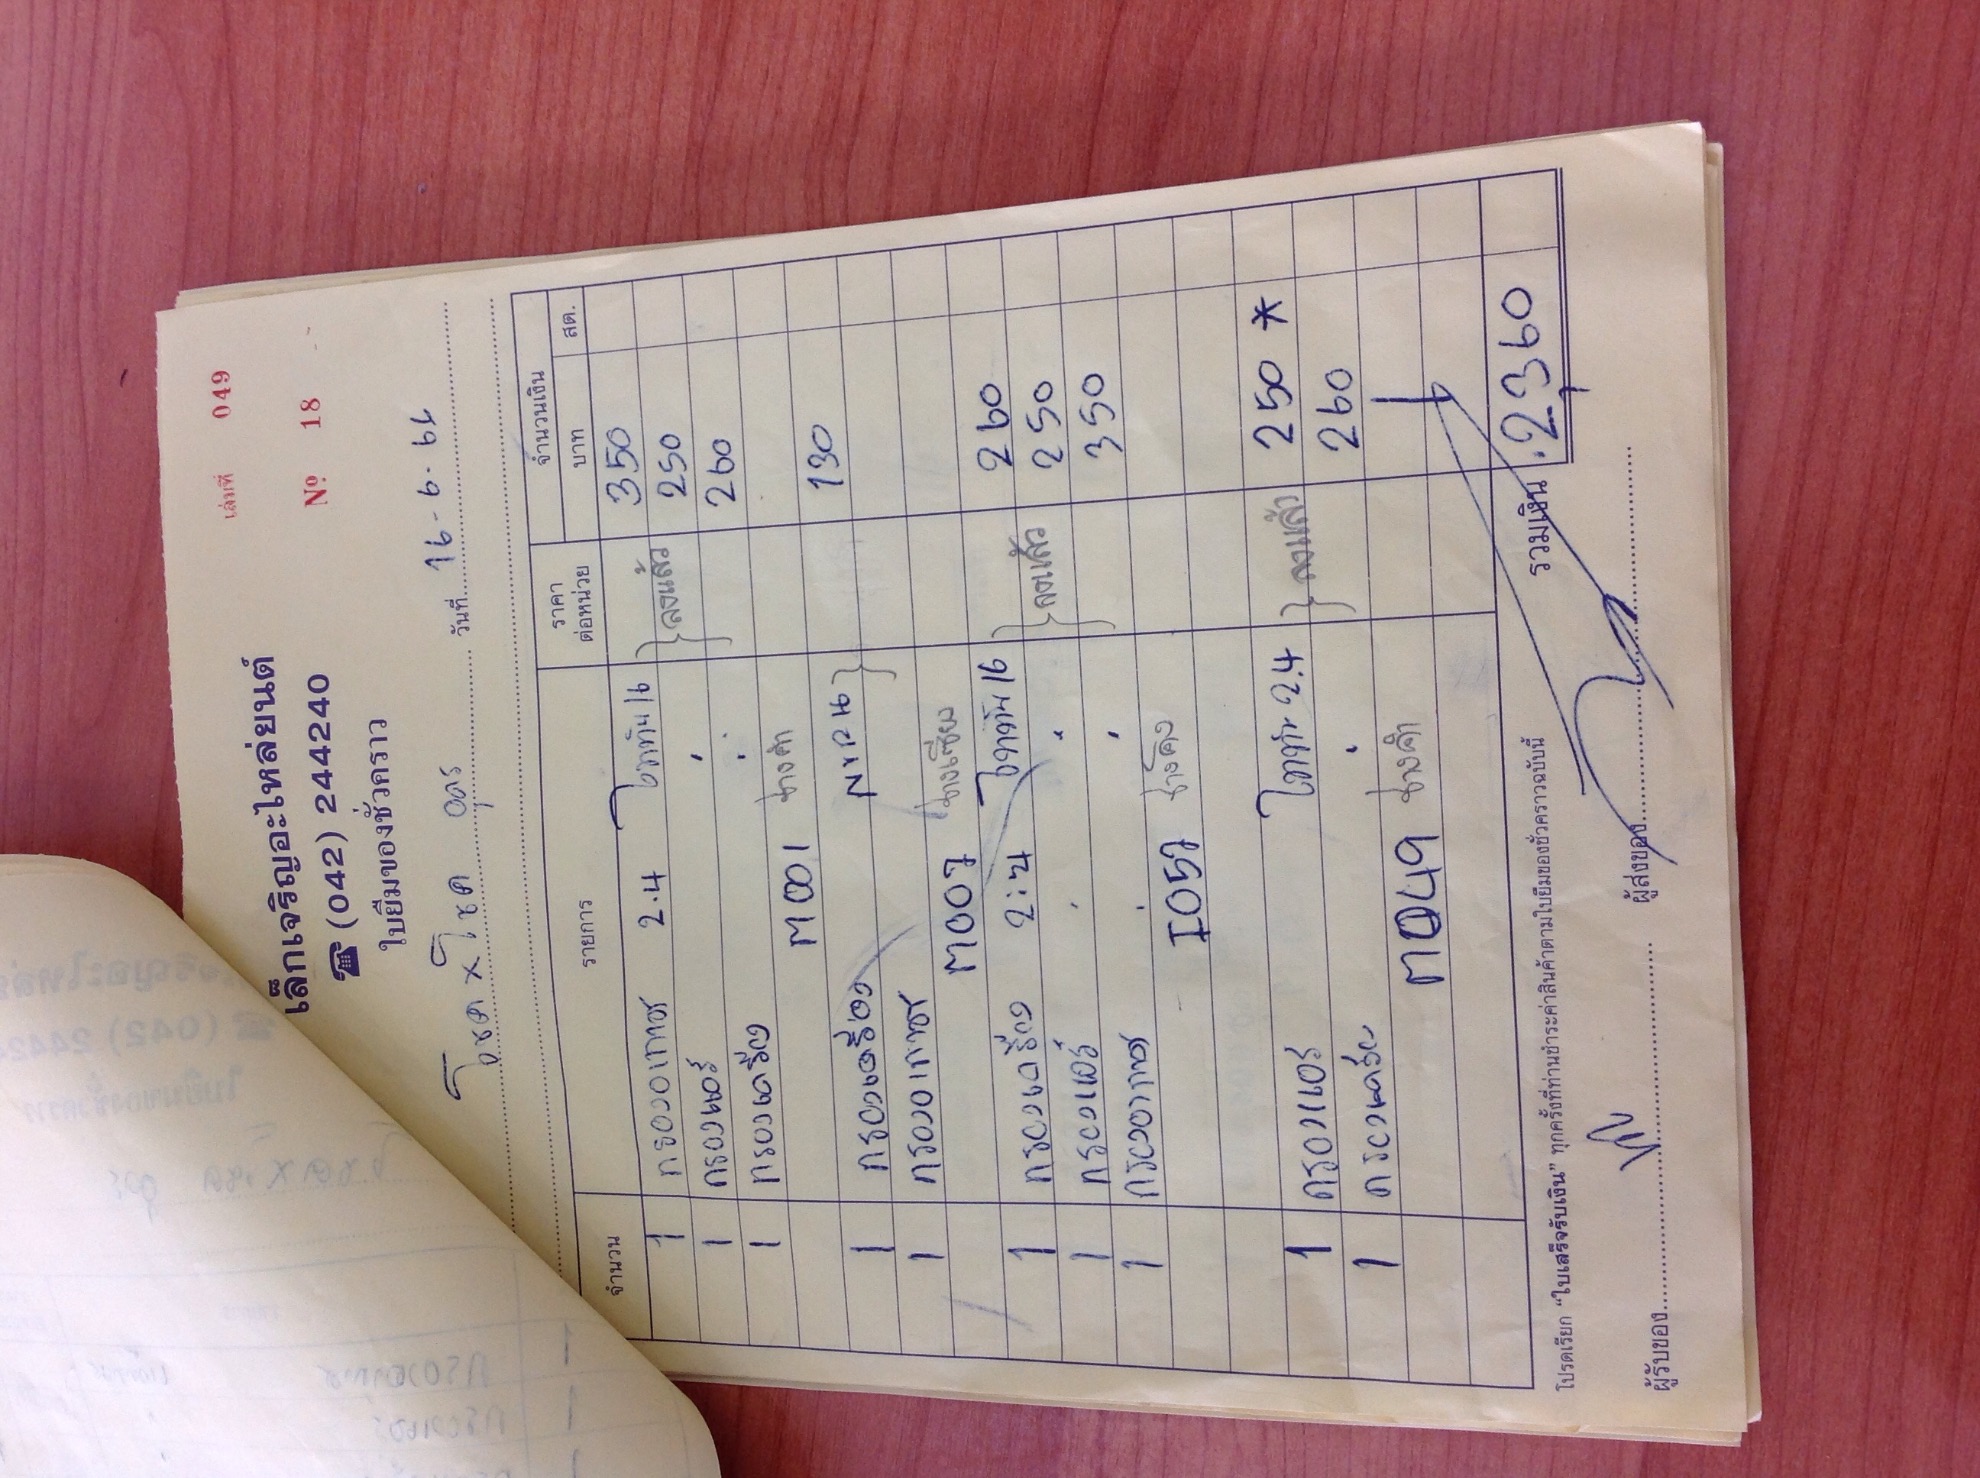 เล่มที่ 049
เล็กเจริญอะไหล่ยนต์
☎ (042) 244240
Nº 18
ใบยืมของชั่วคราว
โชค x โชค อุดร วันที่ 16-6-61
จำนวน รายการ ราคาต่อหน่วย จำนวนเงิน บาท สต.
1 กรองอากาศ 2.4 ไททัน 16 350
1 กรองแอร์ " } ลงแล้ว 250
1 กรองเครื่อง " 260
M001 ช่างคำ
1 กรองเครื่อง 130
1 กรองอากาศ
M007 ช่างเซียม
1 กรองเครื่อง 2.4 ไททัน 16 260
1 กรองแอร์ " " } ลงแล้ว 250
1 กรองอากาศ " " 350
I057 ช่างโคง
1 กรองแอร์ 2.4 } ลงแล้ว 250 *
1 กรองเครื่อง " 260
M049 ช่างคำ
รวมเงิน 2,360
โปรดเรียก "ใบเสร็จรับเงิน" ทุกครั้งที่ท่านชำระค่าสินค้าตามใบยืมของชั่วคราวฉบับนี้
ผู้รับของ ผู้ส่งของ